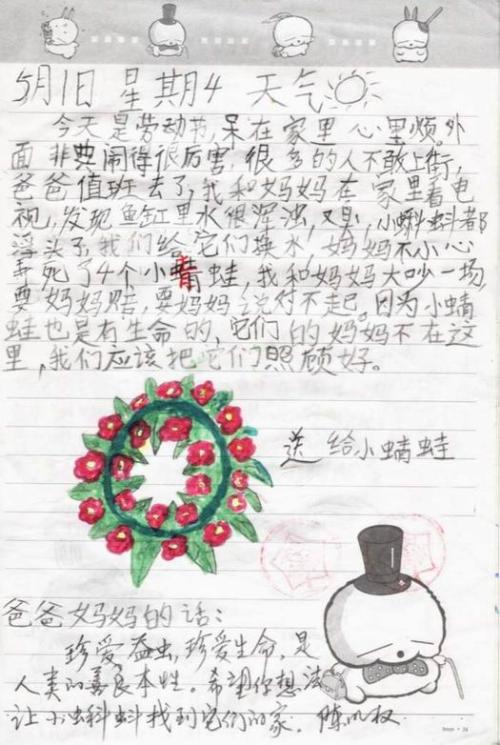 5月1日 星期4 天气
今天是劳动节,呆在家里心里烦。外
面非典闹得很厉害,很多的人不敢上街,
爸爸值班去了,我和妈妈在家里看电
视,发现鱼缸里水很浑浊,小蝌蚪都
浮头了,我们给它们换水,妈妈不小心
弄死了4个小青蛙,我和妈妈大吵一场,
要妈妈赔,要妈妈说对不起。因为小蜻
蛙也是有生命的,它们的妈妈不在这
里,我们应该把它们照顾好。
送给小蜻蛙
爸爸妈妈的话:
珍爱益虫,珍爱生命,是
人类的善良本性。希望你想法
让小蝌蚪找到它们的家。